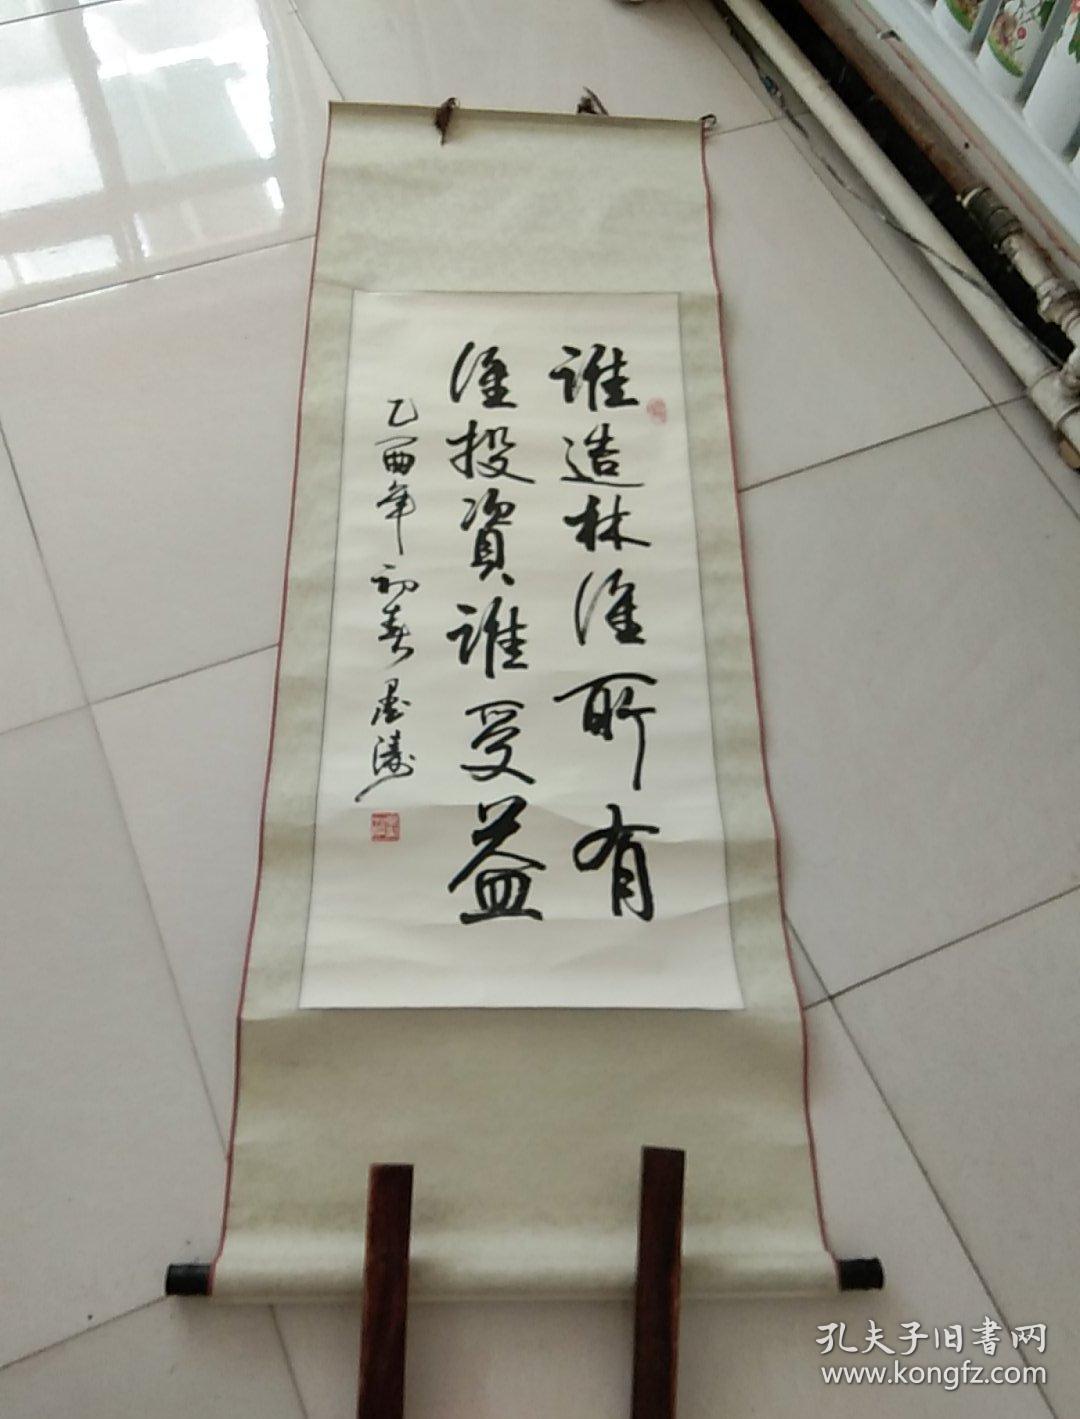 誰造林誰所有
誰投資誰受益
乙酉年初春墨濤
孔夫子旧書网
www.kongfz.com